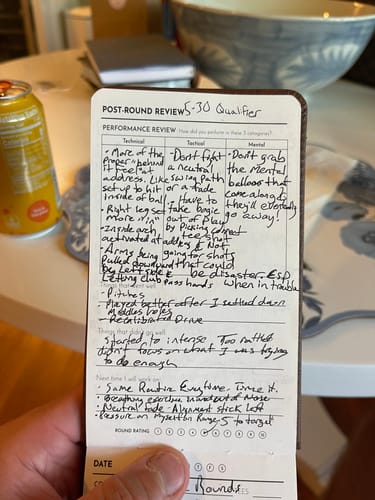 POST-ROUND REVIEW 5-30 Qualifier
PERFORMANCE REVIEW How did you perform in these 3 categories?
Technical
• More of the
proper "behind
it feel" at
address. Like
set up to hit
inside of ball
• Right leg set
more "in"
• Inside arch
activated at address
• Arms being
pulled downward
by left side &
letting club pass hands
Tactical
• Don't fight
a neutral
swing path
or a fade
• Have to
take bogie
out of play
by picking correct
tee shot
& Not
going for shots
that could
be disaster. ESP
when in trouble
Mental
• Don't grab
the mental
balloons that
come along &
they'll eventually
go away!
Things that went well
• Pitches
• Played better after I settled down
middle holes
• Recalibrated Drive
Things that did not go well
Started to intense. Too rattled
didn't focus on what I was trying
to do enough
Next time I will work on
• Same Routine Everytime.
• Breathing exercise in and out of Nose
• Neutral fade - Alignment stick Left
• Pressure on myself on Range 5 to target
ROUND RATING 1 2 3 4 5 6 7 8 9 10
DATE
Rounds